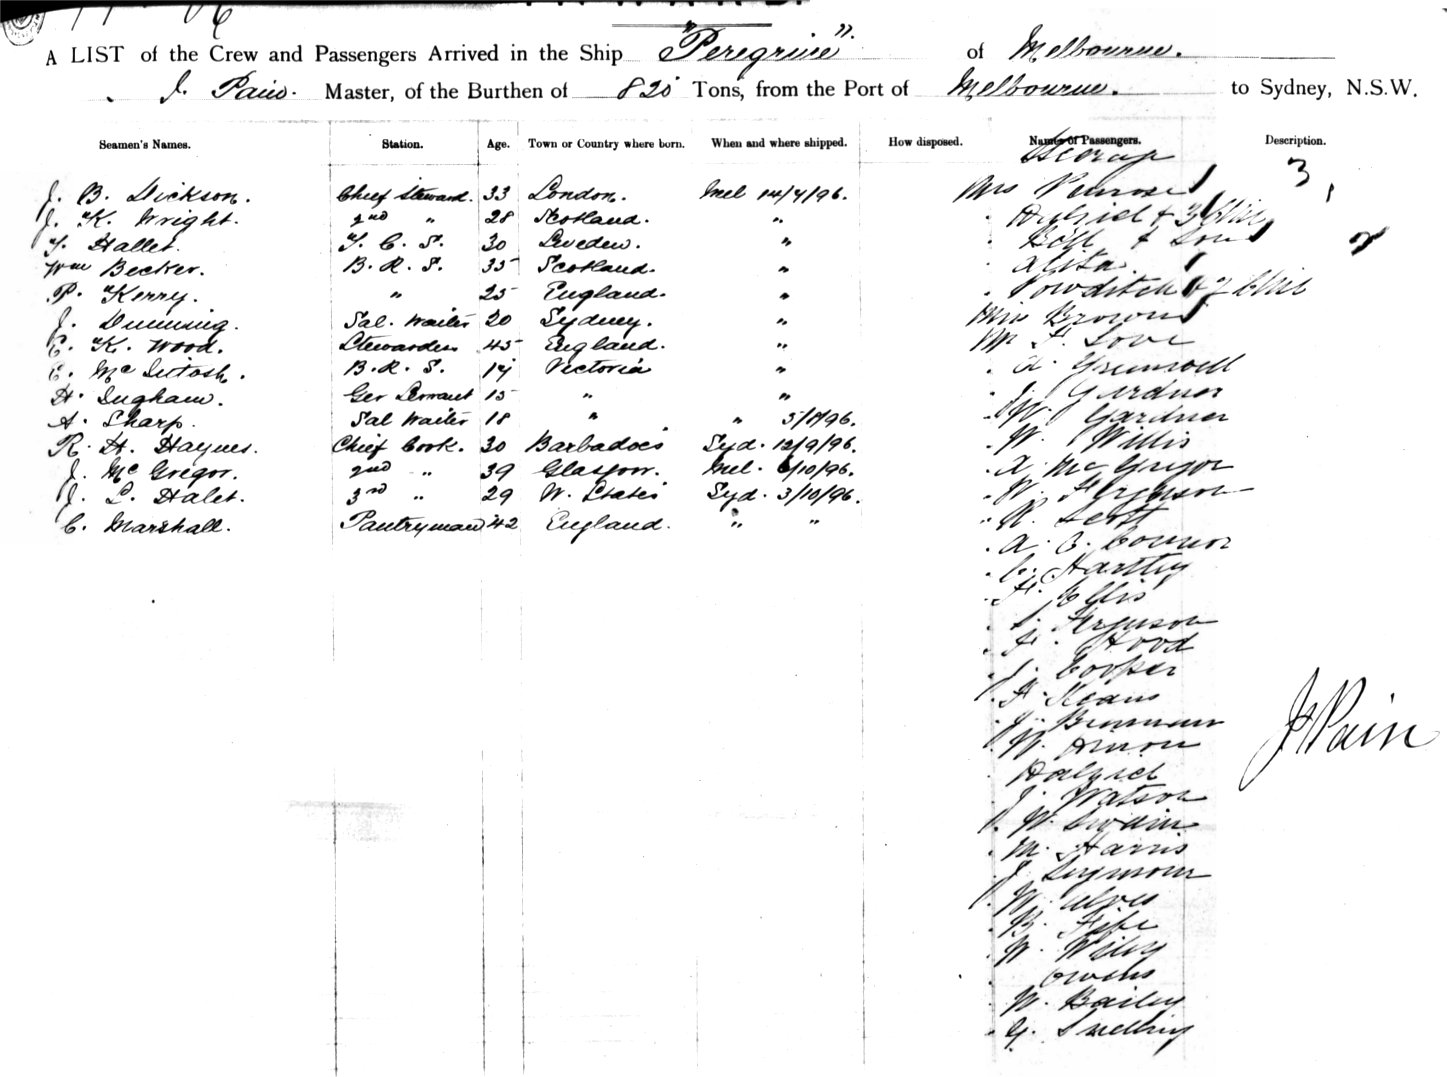 A LIST of the Crew and Passengers Arrived in the Ship "Peregrine". of Melbourne.
J. Pain. Master, of the Burthen of 820 Tons, from the Port of Melbourne. to Sydney, N.S.W.
Seamen's Names. Station. Age. Town or Country where born. When and where shipped. How disposed. Names of Passengers. Description.
Steerage 3
J. B. Dickson. Chief Steward. 33 London. Mel 14/7/96. Mrs Penrose 1
J. K. Wright. 2nd " 28 Scotland. " Dalziel & 3 Chil
F. Hallet. F. C. S. 30 Sweden. " Bell & Son
Wm Becker. B. R. S. 35 Scotland. "
P. Kerry. " 25 England. " Powditch & 2 Chil
J. Dunning. Sal. Waiter 20 Sydney. " Miss Brown
E. K. Wood. Stewardess 45 England. " Mr F. Love
E. McIntosh. B. R. S. 17 Victoria "
H. Ingham. Gen Servant 15 " " J. Gardner
A. Sharp. Sal Waiter 18 " " 5/8/96. W. Gardner
R. H. Haynes. Chief Cook. 30 Barbadoes Syd. 12/9/96. W. Willis
J. McGregor. 2nd " 39 Glasgow. Mel. 6/10/96. A. McGregor
J. L. Halet. 3rd " 29 W. States Syd. 3/10/96. W. Ferguson
C. Marshall. Pantryman 42 England. " " R. Scott
A. O. Connor
C. Hartley
H. Ellis
J. Ferguson
F. Hood
J. Cooper
F. Keans
J. Brennan
W. Armon
Dalziel
J. Watson
W. Swain
M. Harris
J. Seymour
W. Alves
B. Fife
W. Wiley
Owens
M. Bailey
G. Snelling
J Pain